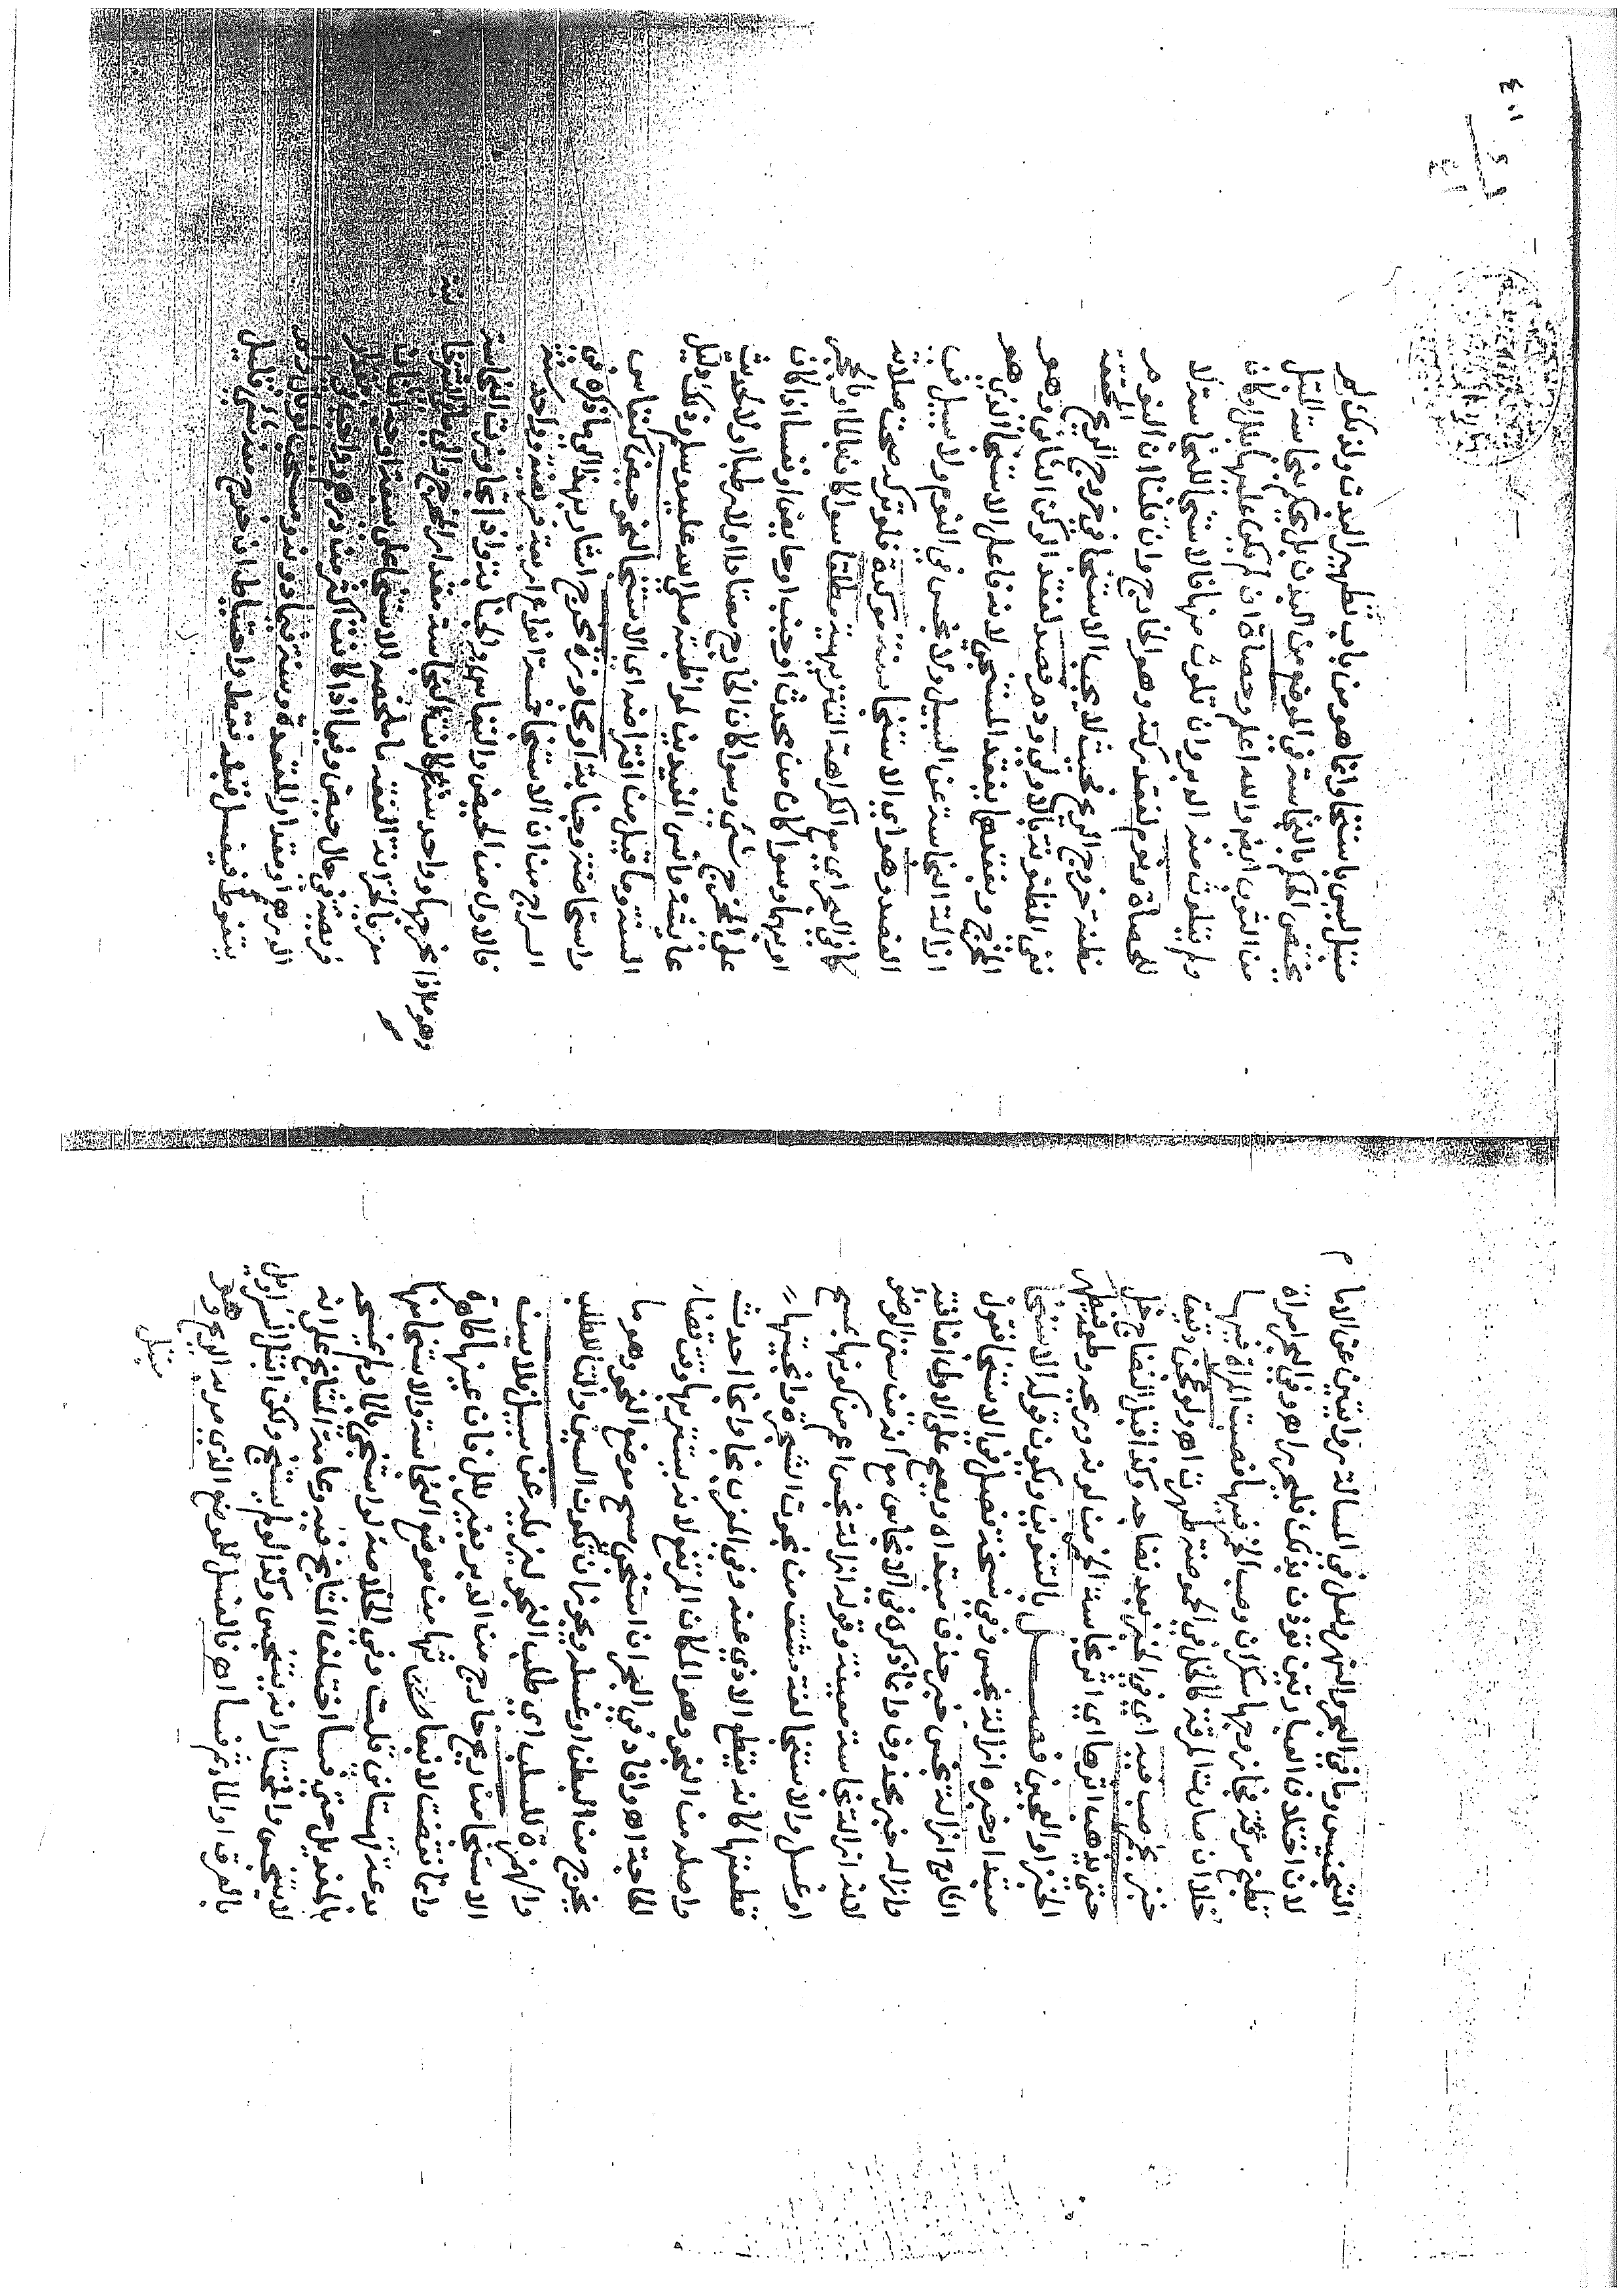 التنجيس وما في البحر والنهر ولعل في المسالة روايتين عن الامام
لان اختلاف العبارتين تؤذن بذلك فليحرر اه وفي البحر امراة
تطبخ مرقة فجا زوجها سكران وصب الخمر فيها فصبت المراة فيها
خلا ان صارت المرقة كالخل في الحموضة طهرت اه ولو عجن دقيق
خبز بخمر صب فيه اي في الخبز بعد نضاجه وكذا قبل النضاج خل
حتى يذهب اثرها اي اثر نجاسة الخمر من لون وريح وطعم فيطهر
الخبز او العجين فصل بالتنوين ويكون قوله الاستنجا
مبتدا وخبره ازالة نجس وفي نسخة فصل في الاستنجا فقول
الشارح ازالة نجس خبر حذف مبتداه ويصح على الاول اضافته
وازالة خبر محذوف وانما ذكره في الانجاس مع انه من سنن الوضو
لانه ازالة نجاسة معينة وقوله ازالة نجس اعم من كونها بمسح
او غسل والاستنجا لغة مشتق من نجوت الشجرة وانجيتها
قطعتها كانه يقطع الاذى عنه وفي المغرب نجا وانجا احدث
واصله من النجو وهو المكان المرتفع لانه يستتر بها وقت قضاء
الحاجة اه وافاد في البحر ان استنجى مسح موضع النجو وهو ما
يخرج من البطن او غسله ويجوز ان تكون السين والتا للطلب
والهمزة للسلب اي طلب النجو ليزيله عن سبيل فلا يسن
الاستنجا من ريح خارج من الدبر فان عينها طاهرة
وانما نقضت لانبعاثها من موضع النجاسة والاستنجا منها
بدعة قهستاني قلت وفي الخلاصة لو استنجى بالماء ولم يمسحه
بالمنديل حتى فسا اختلف المشايخ فيه وعامة المشايخ على انه
لا يتنجس والمختار انه يتنجس وكذا لو لم يستنج ولكن ابتل السراويل
بالعرق او الماء ثم فسا اه فالغسل للموضع الذي مر به الريح وهو
مبتل
مبتل ليس باستنجا وانما هو من باب تطهير البدن ولذلك لم
يختص الحكم بالنجاسة في الموضع من البدن بل يحكم بنجاسة المبتل
من الثوب ايضا والله اعلم وحصاة ان لم يكن عليها بلل او كان
ولم يتلوث منه الدبر وان تلوث منها فالاستنجا للنجاسة لا
للحصاة ونوم لفقد ركنه وهو الخارج وان قلنا ان النوم
مظنة خروج الريح فحينئذ لا يجب الاستنجا في خروج الريح المحقق
ففي المظنون به بالاولى ودم فصد لفقد الركن الثاني وهو
المخرج وبفقدهما يفقد المستنجي لانه فاعل الاستنجا الذي هو
ازالة النجاسة عن السبيل ولا نجس في النوم ولا سبيل في
الفصد وهو اي الاستنجا سنة موكدة فلو تركه صحت صلاته
كما في البحر اي مع الكراهة التنزيهية مطلقا سوا كان بالماء او بالحجر
او بهما وسوا كان من محدث او جنب او حايض او نفسا اذا كان
على المخرج شي وسوا كان الخارج معتادا او لا رطبا او لا لحديث
عايشة وانس المفيدين لمواظبته صلى الله عليه وسلم وذكر دليل
السنة وما قيل من افتراضه اي الاستنجا لنحو حيض كنفاس
واستحاضة وجنابة او مجاوزة مخرج اشار بهذا الى ما ذكره في
السراج من ان الاستنجا خمسة انواع اربعة فريضة وواحد سنة
فالاول من الحيض والنفاس والجنابة واذا تجاوزت النجاسة
مخرجها وواحد سنة وهو ما اذا كانت النجاسة مقدار المخرج